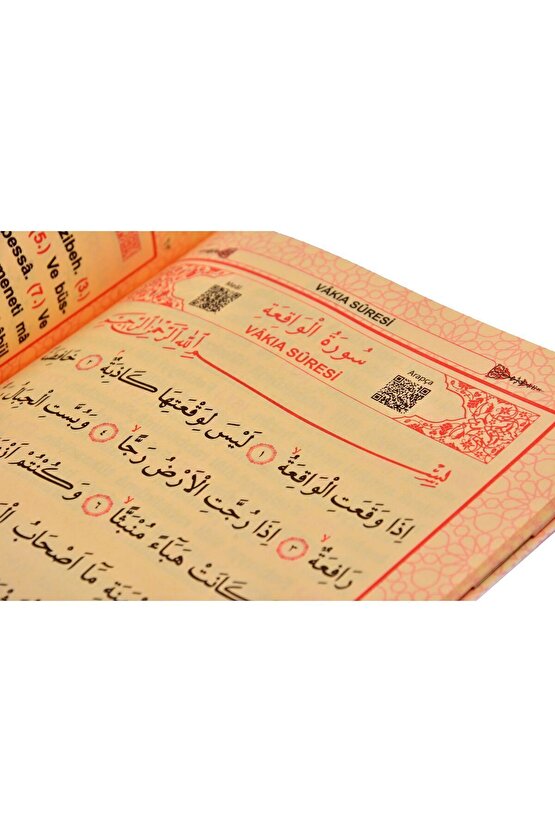 zibeh. (3.)
(5.) Ve büs-
bessâ. (7.) Ve
meneti mâ
VÂKIA SÛRESİ
Meâl
سُورَةُ الْوَاقِعَةِ
VÂKIA SÛRESİ
Arapça
بِسْمِ اللّٰهِ الرَّحْمٰنِ الرَّحِيمِ
اِذَا وَقَعَتِ الْوَاقِعَةُ ۙ ﴿١﴾ لَيْسَ لِوَقْعَتِهَا كَاذِبَةٌ ﴿٢﴾
رَافِعَةٌ ۙ ﴿٣﴾ اِذَا رُجَّتِ الْاَرْضُ رَجًّا ۙ ﴿٤﴾ وَبُسَّتِ الْجِبَالُ
كَانَتْ هَبَٓاءً مُنْبَثًّا ۙ ﴿٦﴾ وَكُنْتُمْ
مَٓا اَصْحَابُ